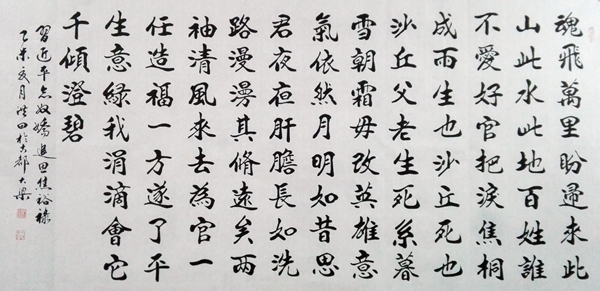 魂飛萬里盼歸來此
山此水此地百姓誰
不愛好官把淚焦桐
成雨生也沙丘死也
沙丘父老生死系暮
雪朝霜毋改英雄意
氣依然月明如昔思
君夜夜肝膽長如洗
路漫漫其脩遠矣兩
袖清風來去為官一
任造福一方遂了平
生意綠我涓滴會它
千傾澄碧
習近平念奴嬌追思焦裕祿
乙未夏月洪田於古都大梁